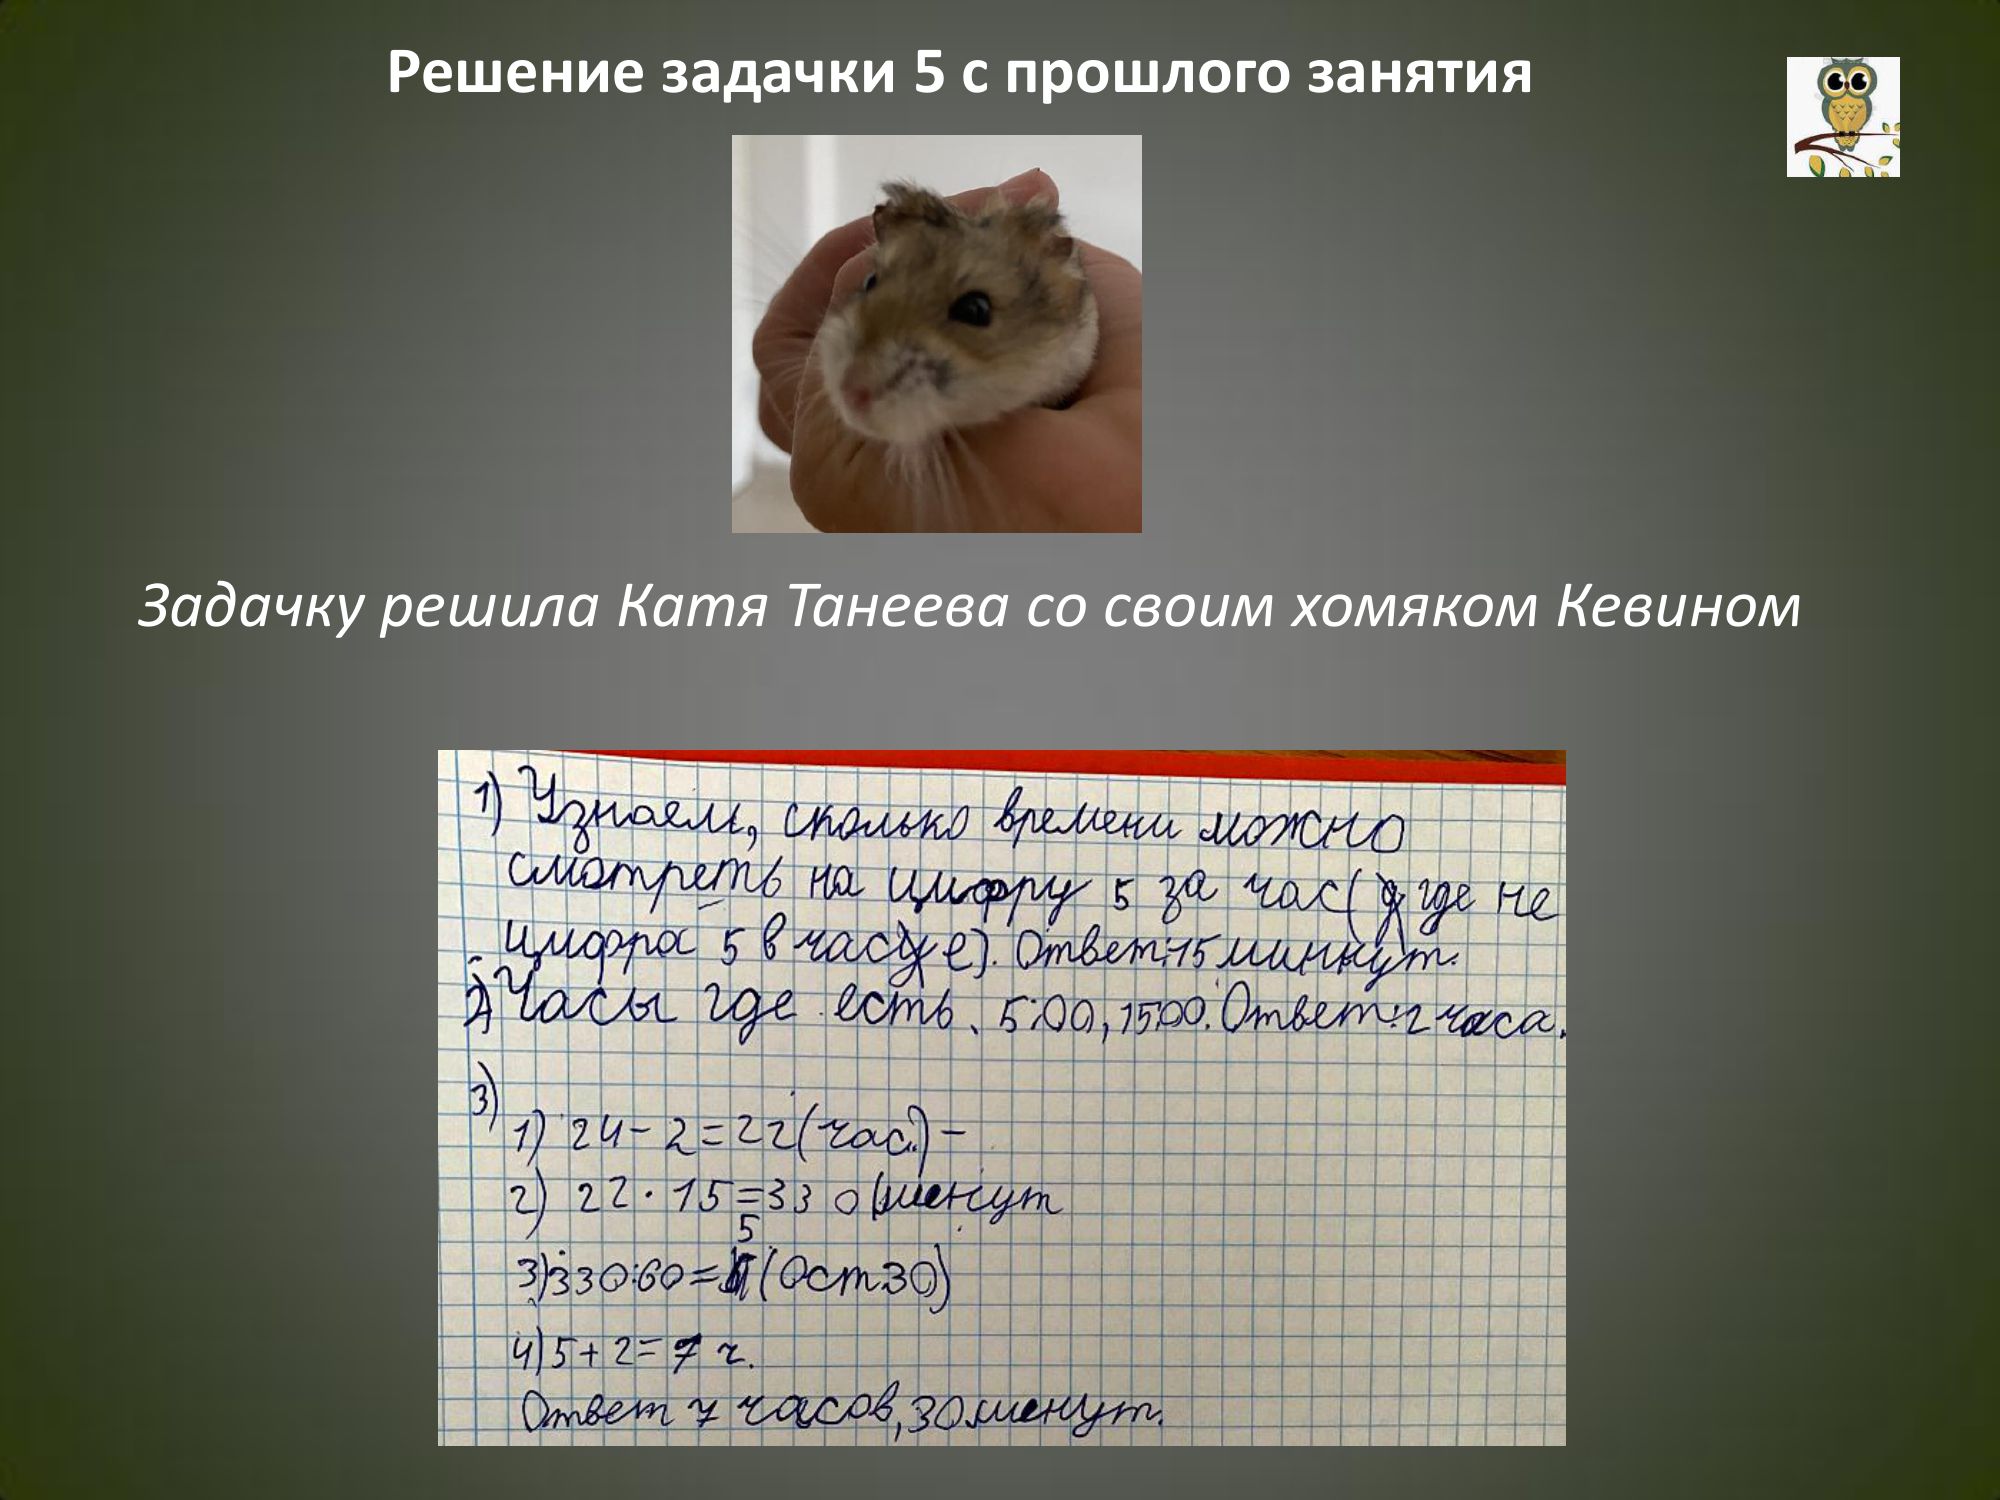 Решение задачки 5 с прошлого занятия
Задачку решила Катя Танеева со своим хомяком Кевином
1) Узнаем, сколько времени можно
смотреть на цифру 5 за час (где не
цифра 5 в часе). Ответ: 15 миннут.
2) Часы где есть. 5:00, 15:00. Ответ: 2 часа.
3)
1) 24 - 2 = 22 (час.) -
2) 22 · 15 = 330 минут
3) 330:60 = 5 (Ост 30)
4) 5 + 2 = 7 ч.
Ответ 7 часов, 30 минут.